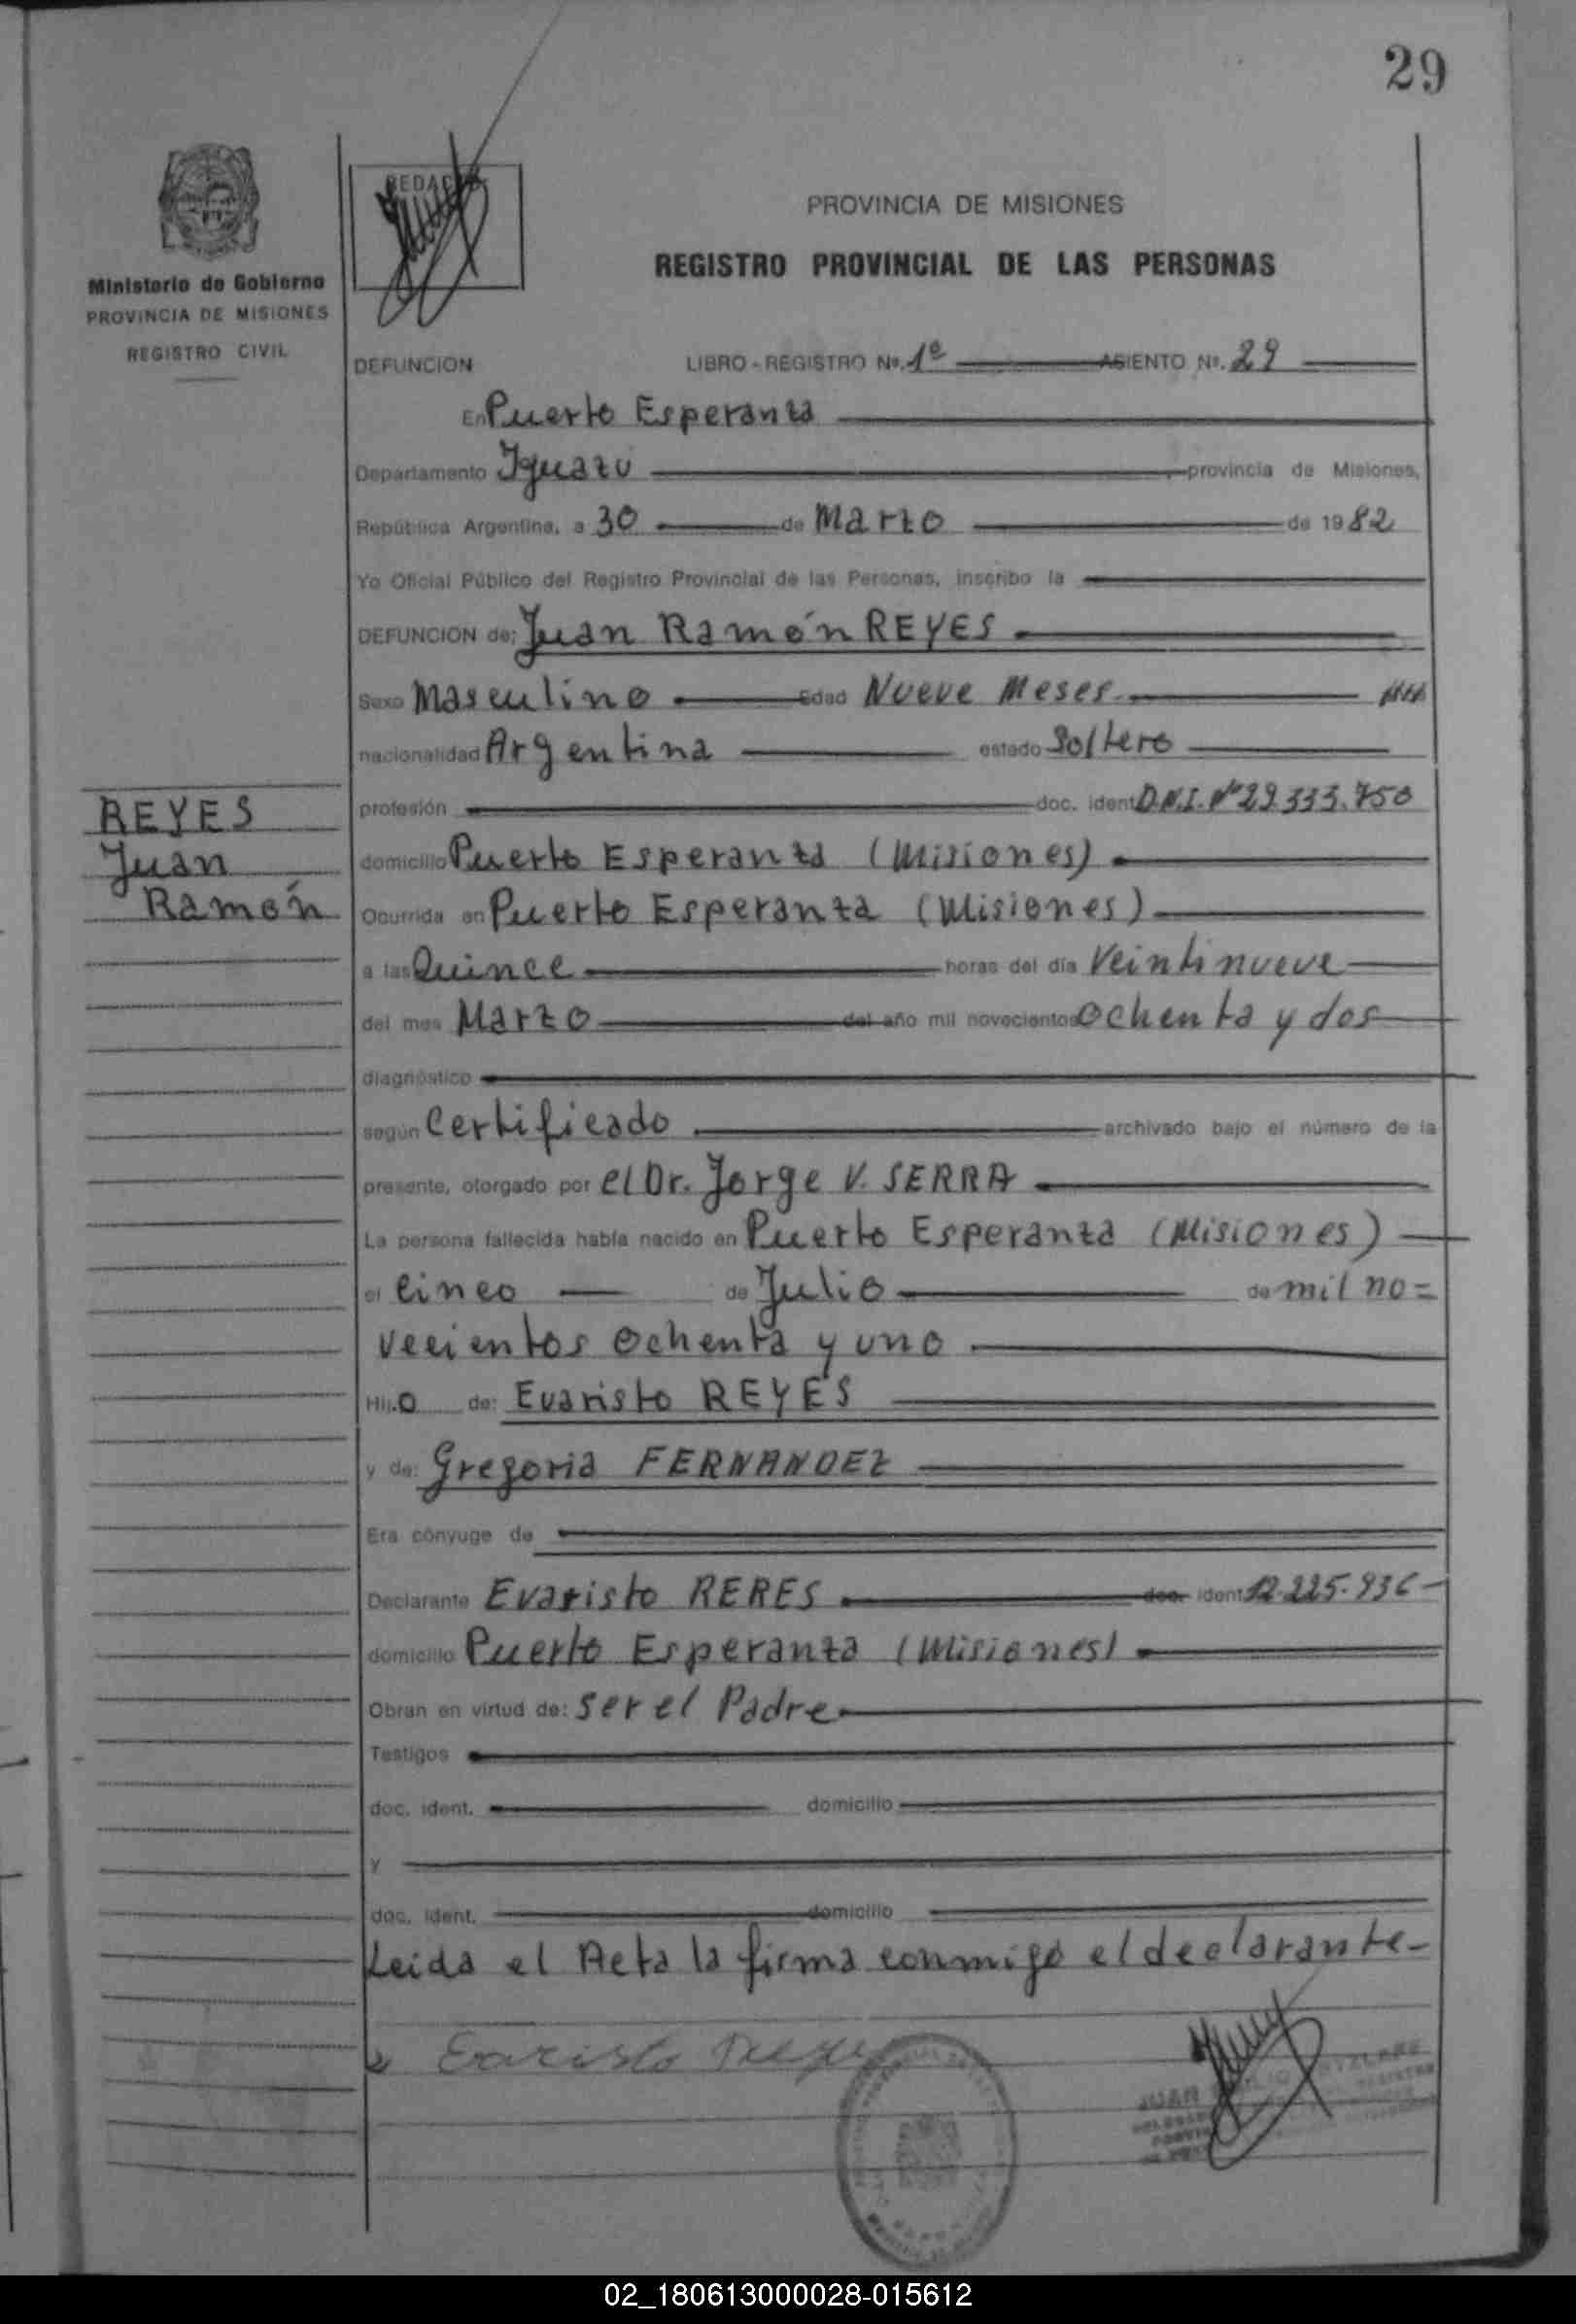 29
Ministerio de Gobierno
PROVINCIA DE MISIONES
REGISTRO CIVIL
PROVINCIA DE MISIONES
REGISTRO PROVINCIAL DE LAS PERSONAS
DEFUNCION LIBRO - REGISTRO Nº. 1º ASIENTO Nº. 29
En Puerto Esperanza
Departamento Iguazú, provincia de Misiones,
República Argentina, a 30 de Marzo de 1982
Yo Oficial Público del Registro Provincial de las Personas, inscribo la
DEFUNCION de: Juan Ramón REYES
Sexo Masculino Edad Nueve Meses
nacionalidad Argentina estado Soltero
REYES
Juan
Ramón
profesión doc. ident. D.N.I. Nº 29.333.750
domicilio Puerto Esperanza (Misiones)
Ocurrida en Puerto Esperanza (Misiones)
a las Quince horas del día Veintinueve
del mes Marzo del año mil novecientos Ochenta y dos
diagnóstico
según Certificado archivado bajo el número de la
presente, otorgado por el Dr. Jorge V. SERRA
La persona fallecida había nacido en Puerto Esperanza (Misiones)
el Cinco de Julio de mil no=
vecientos ochenta y uno
Hij.o de: Evaristo REYES
y de: Gregoria FERNANDEZ
Era cónyuge de
Declarante Evaristo RERES doc. ident. 12.225.936
domicilio Puerto Esperanza (Misiones)
Obran en virtud de: Ser el Padre
Testigos
doc. ident. domicilio
y
doc. ident. domicilio
Leida el Acta la firma conmigo el declarante-
Evaristo
JUAN
02_180613000028-015612